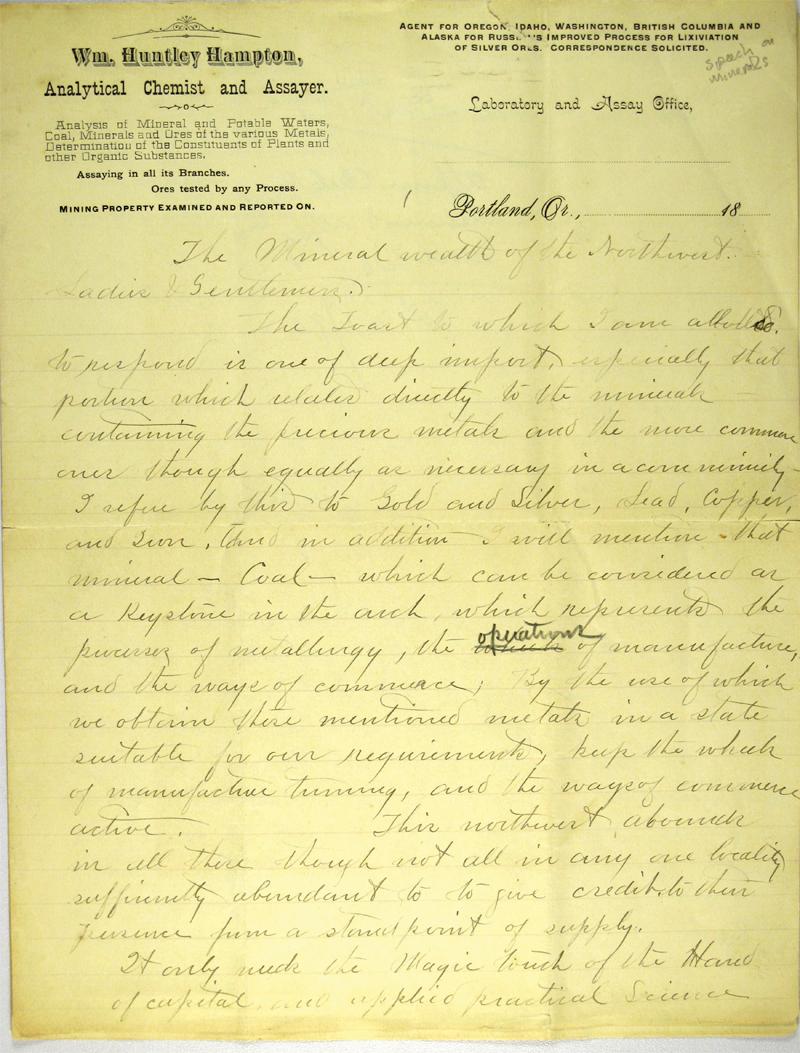 Wm. Huntley Hampton,
Analytical Chemist and Assayer.
Analysis of Mineral and Potable Waters,
Coal, Minerals and Ores of the various Metals,
Determination of the Constituents of Plants and
other Organic Substances.
Assaying in all its Branches.
Ores tested by any Process.
Mining Property Examined and Reported On.
Agent for Oregon, Idaho, Washington, British Columbia and
Alaska for Russell's Improved Process for Lixiviation
of Silver Ores. Correspondence Solicited.
Speech on
minerals
Laboratory and Assay Office,
Portland, Or., 18
The Mineral wealth of the Northwest.
Ladies & Gentlemen.
The Toast to which I am allotted.
to respond is one of deep import, especially that
portion which relates directly to the minerals
containing the precious metals and the more common
ones though equally as necessary in a community -
I refer by this to Gold and Silver, Lead, Copper,
and Iron, and in addition I will mention - that
mineral - Coal - which can be considered as
a Keystone in the arch, which represents the
processes of metallurgy, the operations of manufacture,
and the ways of commerce; By the use of which
we obtain these mentioned metals in a state
suitable for our requirements, keep the wheels
of manufacture turning, and the ways of commerce
active. This northwest abounds
in all these though not all in any one locality
sufficiently abundant to to give credit to their
presence from a standpoint of supply.
It only needs the Magic touch of the Hand
of capital, and applied practical Science